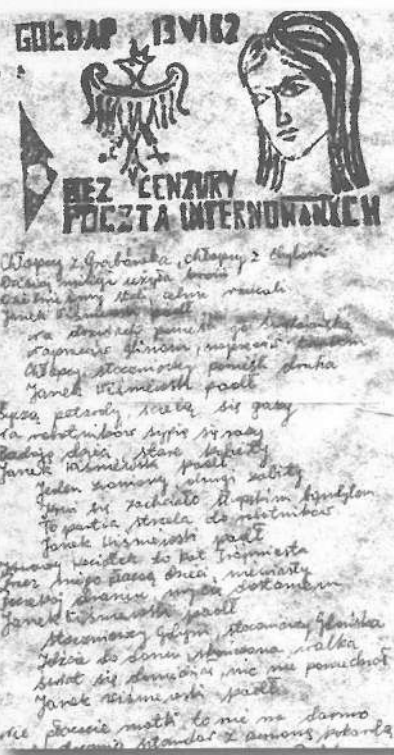 GOŁDAP 13 VI 82
BEZ CENZURY
POCZTA INTERNOWANYCH
Chłopcy z Grabówka, chłopcy z Chyloni
Dzisiaj milicja użyła broni
stali, celnie rzucali
Janek Wiśniewski padł
na drzwiach ponieśli go Świętojańską
naprzeciw glinom, naprzeciw tankom
Chłopcy, stoczniowcy druha
Janek Wiśniewski padł
petardy, ścielą się gazy
Na robotników sypią się razy
Padają dzieci, starcy, kobiety
Janek Wiśniewski padł
Jeden zraniony, drugi zabity
Krwi się zachciało słupskim bandytom
To partia strzela do robotników
Janek Wiśniewski padł
Krwawy Kociołek to kat Trójmiasta
Przez niego płaczą dzieci, niewiasty
Poczekaj draniu, my cię dostaniem
Janek Wiśniewski padł
Stoczniowcy Gdyni, stoczniowcy Gdańska
Idźcie do domu, skończona walka
Świat się dowiedział, nic nie powiedział
Janek Wiśniewski padł
płaczcie matki, to nie na darmo
sztandar z czarną kokardą